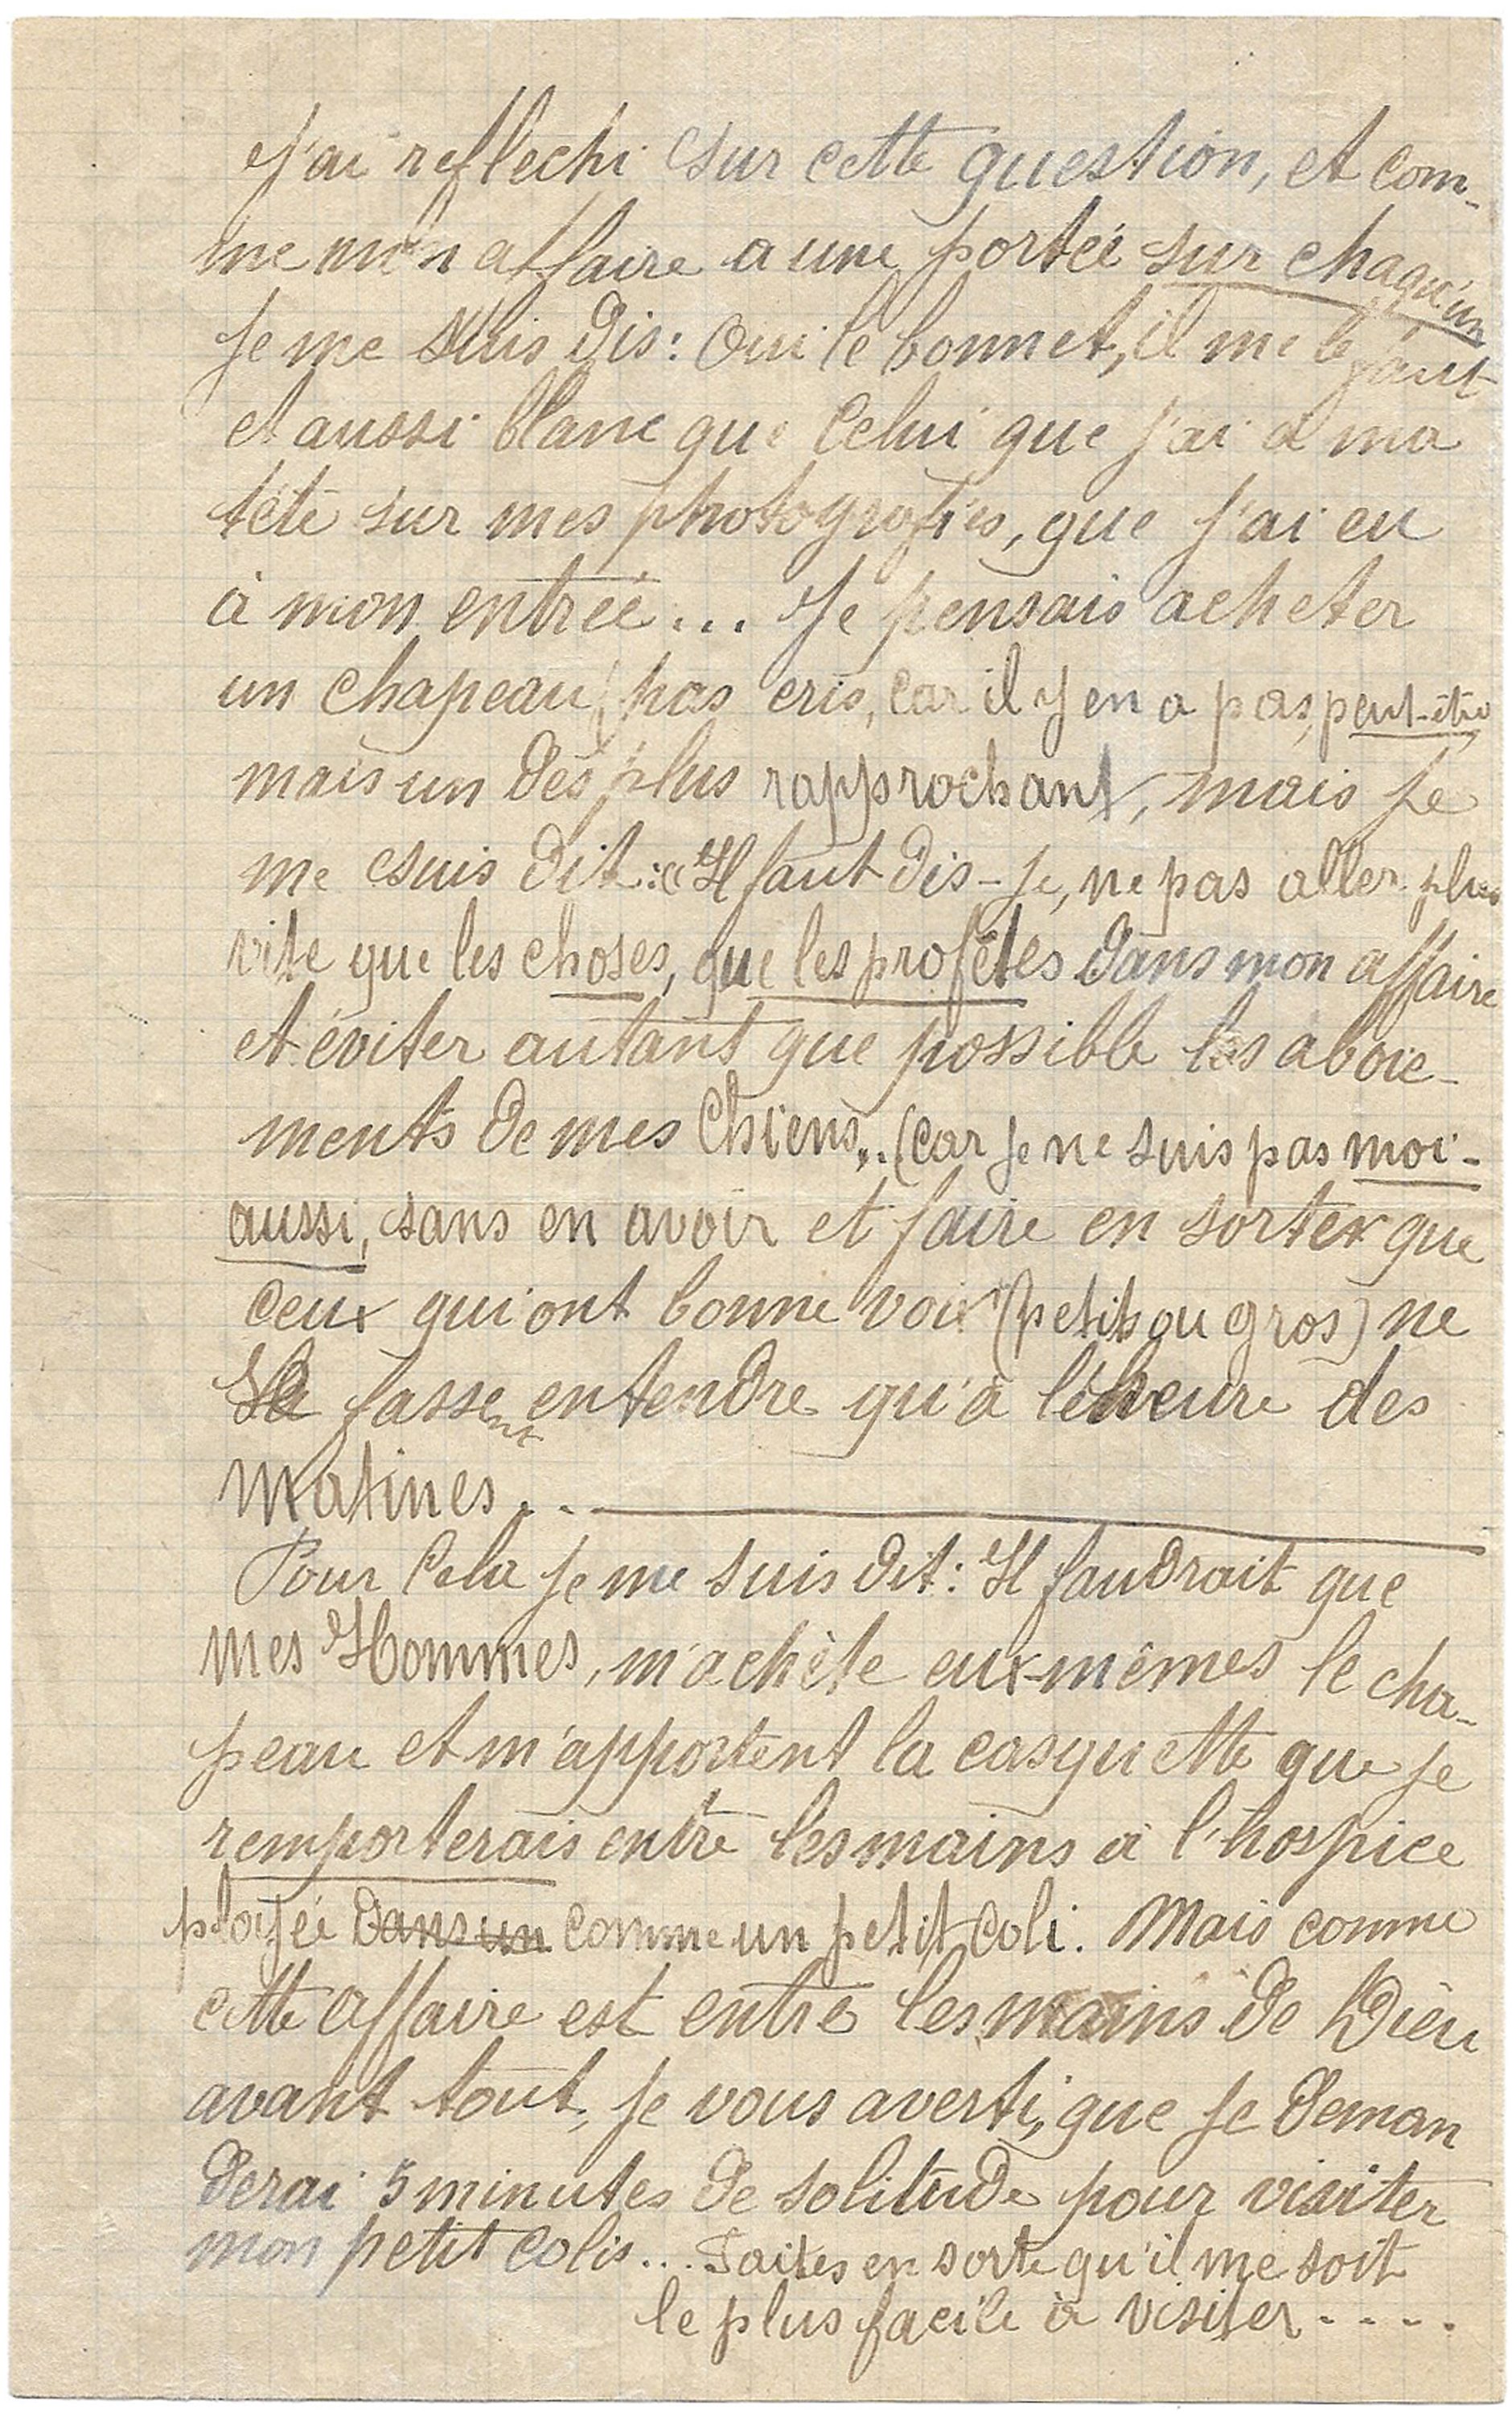 J'ai reflechi sur cette question, et com-
me mon affaire a une portée sur chaqu'un
je me suis dis: Oui le bonnet, il me le faut
et aussi blanc que celui que j'ai a ma
tête sur mes photogrofies, que j'ai eu
à mon entrée... Je pensais acheter
un chapeau, pas cris, car il y en a pas, peut-être
mais un des plus rapprochant, mais je
me suis dit: « Il faut dis-je, ne pas aller plus
vite que les choses, que les profêtes dans mon affaire
et éviter autant que possible les aboie-
ments de mes Chiens... (car je ne suis pas moi-
aussi, sans en avoir et faire en sorter que
ceux qui ont bonne voix (petits ou gros) ne
se fassent entendre qu'à l'heure des
Matines... 
Pour cela je me suis dit: Il faudrait que
mes Hommes, m'achète eux-mêmes le cha-
peau et m'apportent la casquette que je
remporterais entre les mains à l'hospice
ployée dans un comme un petit coli. Mais comme
cette affaire est entre les mains de Dieu
avant tout, je vous averti, que je deman
derai 5 minutes de solitude pour visiter
mon petit colis... Faites en sorte qu'il me soit
le plus facile à visiter - - - .